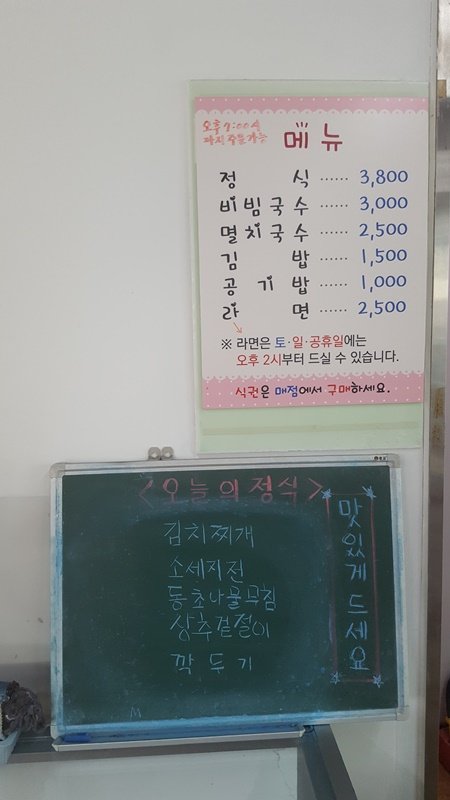 오후 7:00시
까지 주문가능
메뉴
정식 ...... 3,800
비빔국수 ...... 3,000
멸치국수 ...... 2,500
김밥 ...... 1,500
공기밥 ...... 1,000
라면 ...... 2,500
※ 라면은 토·일·공휴일에는
오후 2시부터 드실 수 있습니다.
식권은 매점에서 구매하세요.
<오늘의정식>
김치찌개
소세지전
동초나물무침
상추겉절이
깍두기
맛있게드세요